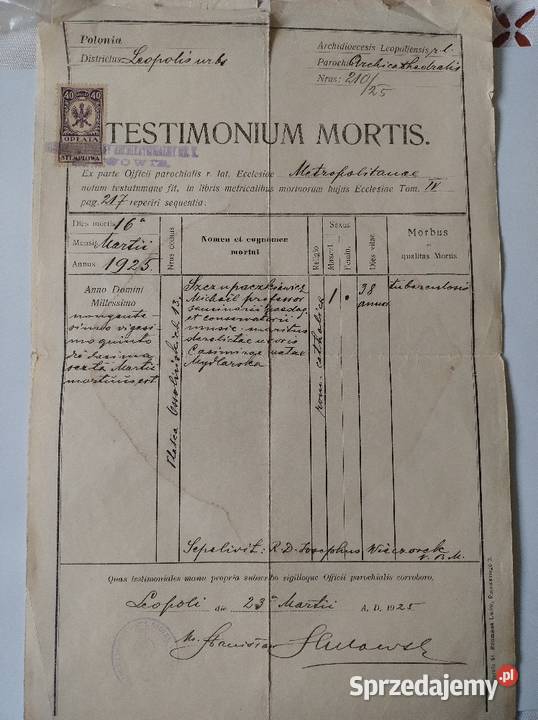 Polonia
Districtus Leopolis urbs
Archidioecesis Leopoliensis r. l.
Parochia Archicathedralis
Nrus: 210/25
40 40
OPŁATA
STEMPLOWA
TESTIMONIUM MORTIS.
Ex parte Officii parochialis r. lat. Ecclesiae Metropolitanae
notum testatumque fit, in libris metricalibus mortuorum hujus Ecclesiae Tom. IV
pag. 217 reperiri sequentia:
Dies mortis 16a
Mensis Martii
Annus 1925
Nrus domus
Nomen et cognomen
mortui
Religio
Sexus
Mascul.
Femin.
Dies vitae
Morbus
et
qualitas Mortis
Anno Domini
Millesimo
nongente
simo vigesi
mo quinto
die decima
sexta Martii
mortuus est
Platea Ossolińskich 13.
Szczupaczkiewicz
Michael professor
seminarii paedag.
et conservatorii
music. maritus
derelictae uxoris
Casimirae natae
Mydlarska
rom. catholica
1
38
annor.
tuberculosis
Sepelivit: R. D. Josephus Wieczorek
Quas testimoniales manu propria subscribo sigilloque Officii parochialis corroboro.
Leopoli die 23a Martii A. D. 1925
Stanislaw
Sprzedajemy.pl